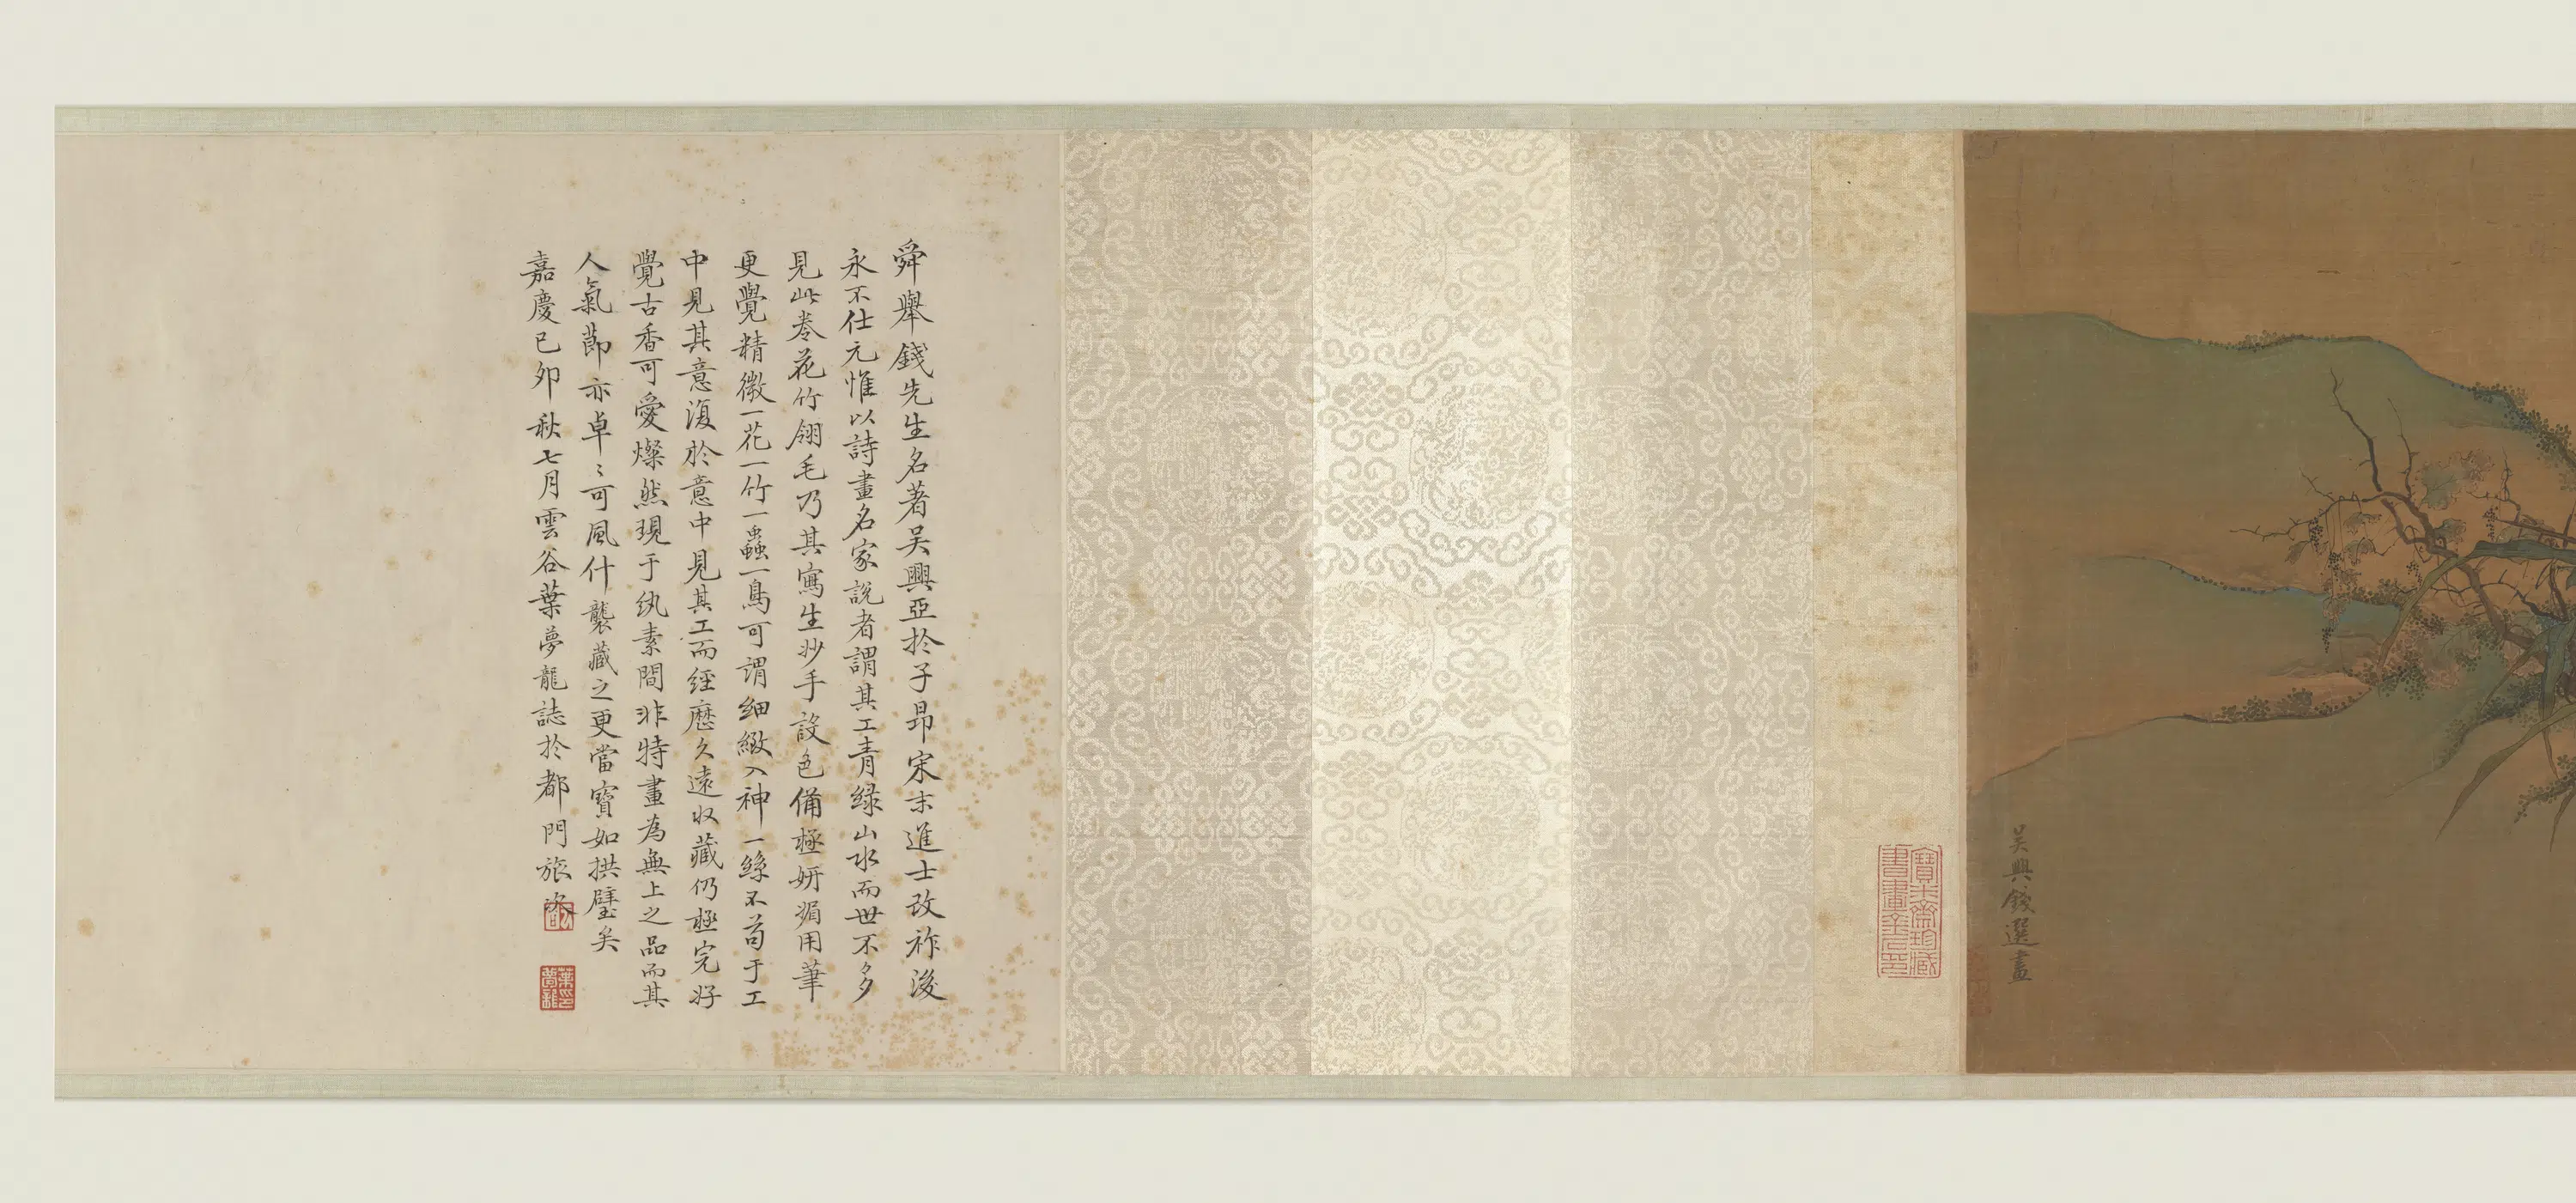 吳興錢選畫
舜舉錢先生名著吳興亞於子昂宋末進士改祚後
永不仕元惟以詩畫名家說者謂其工青綠山水而世不多
見此卷花竹翎毛乃其寫生妙手設色備極妍媚用筆
更覺精微一花一竹一蟲一鳥可謂細緻入神一絲不苟于工
中見其意復於意中見其工而經歷久遠收藏仍極完好
覺古香可愛燦然現于紈素間非特畫為無上之品而其
人氣節亦卓〻可風什襲藏之更當寶如拱璧矣
嘉慶己卯秋七月雲谷葉夢龍誌於都門旅次
葉夢龍印